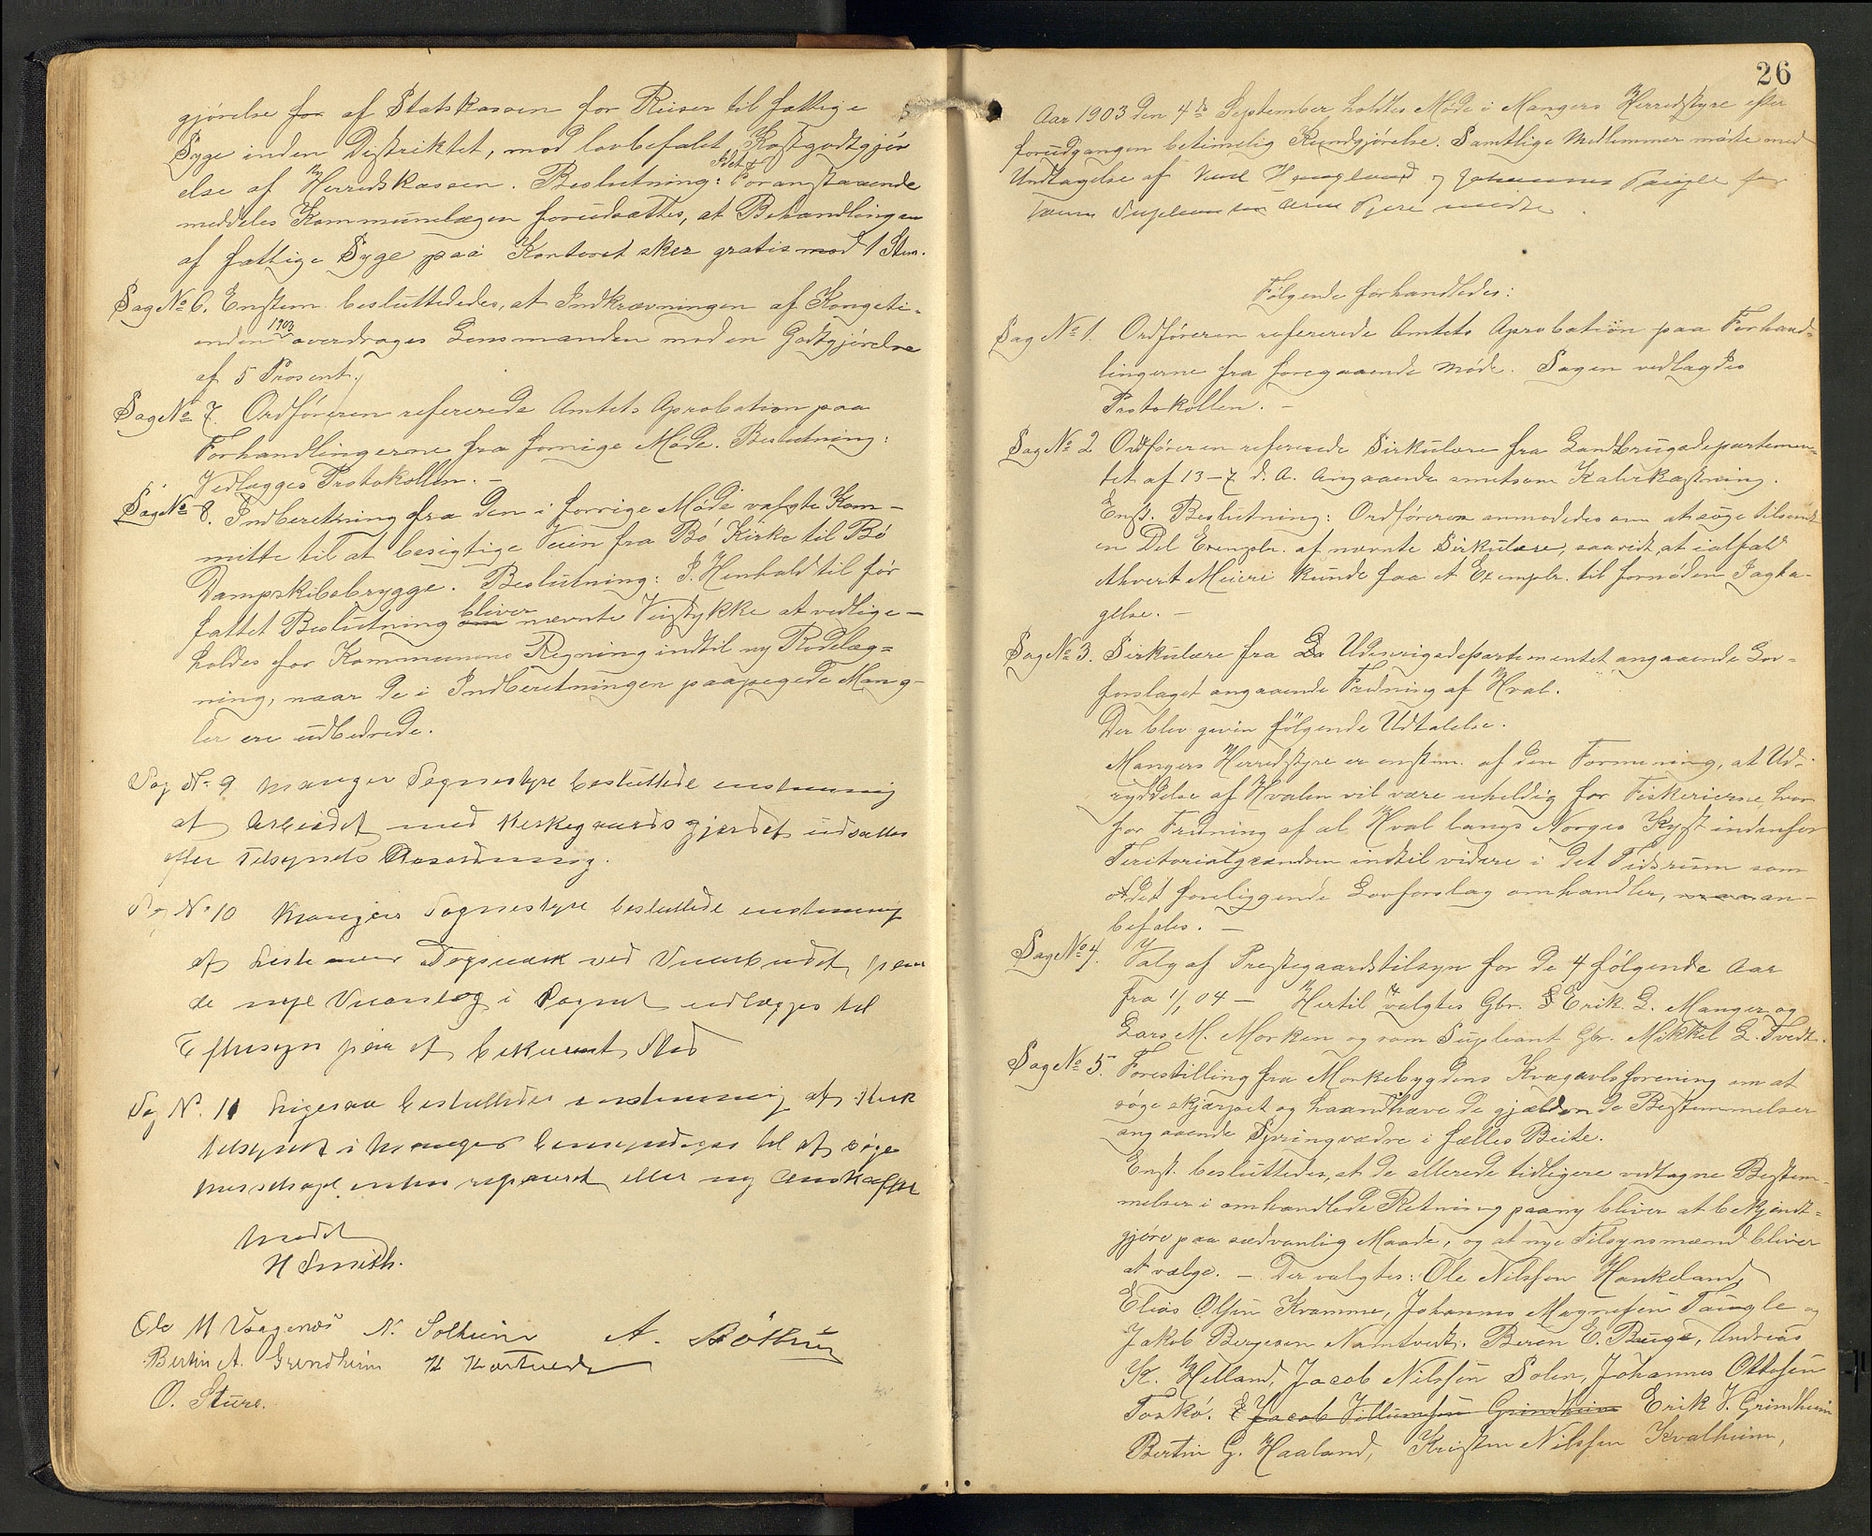 gjørelse for af Statskassen for Reiser til fattige
Syge inden Distriktet, mod lovbefalet Kostgodtgjør
else af Herredskassen. Beslutning: Det Foranstaaende
meddeles Kommunelægen forudsættes, at Behandlingen
af fattige Syge paa Kontoret sker gratis mod 1 Stem.
Sag No 6. Enstem. besluttededes, at Indkrævningen af Kongeti-
enden 1903 overdrages Lensmanden mod en Godtgjørelse
af 5 Prosent.
Sag No 7. Ordføreren refererede Amtets Aprobation paa
Forhandlingerne fra forrige Møde. Beslutning:
Vedlægges Protokollen. -
Sag No 8. Indberetning fra den i forrige Møde valgte Kom-
mitte til at besigtige Veien fra Bø Kirke til Bø
Dampskibsbrygge. Beslutning: I Henhold til før
fattet Beslutning bliver nævnte Veistykke at vedlige-
holdes for Kommunens Regning indtil ny Rodelæg=
ning, naar de i Indberetningen paapegede Mang-
ler ere udbedrede.
Sag No 9 Manger Sognestyre besluttede enstemmig
at Arbeidet med Kirkegaardsgjerdet udsættes
efter Tilsynets
Sag No 10 Mangers Sognestyre besluttede enstemmig
at Liste over Dagsværk ved Veiarbeidet paa
de nye Veianlæg i Sognet udlægges til
Eftersyn paa et bekvemt Sted
Sag No. 11 Ligesaa besluttedes enstemmig at Kirke
tilsynet i Manger bemyndiges til at søge
enten reparert eller ny Anskaffet
Mødet
H Smith.
Ole M Vaagenes N. Solheim A.
Bertin A. Grindheim
O. Sture.
26
Aar 1903 den 4de September holdtes Møde i Mangers Herredstyre efter
forudgangen betimelig Kundgjørelse. Samtlige Medlemmer mødte med
Undtagelse af Haugland og Johannes Taugle for
mødte.
Følgende forhandledes:
Sag No 1. Ordføreren refererede Amtets Aprobation paa Forhand=
lingerne fra foregaaende Møde. Sagen vedlagdes
Protokollen. -
Sag No 2 Ordføreren refererede Sirkulære fra Landbrugsdepartemen=
tet af 13-7 d. A. angaaende smitsom Kalvkastning.
Enst. Beslutning: Ordføreren anmodedes om at søge tilsendt
en Del Exemplr. af nævnte Sirkulære, saavidt at ialfald
ethvert Meieri kunde faa et Exemplr. til fornøden Iagtta-
gelse. -
Sag No 3. Sirkulære fra Da Udenrigsdepartementet angaaende Lov-
forslaget angaaende Fredning af Hval.
Der blev given følgende Udtalelse.
Mangers Herredstyre er enstem. af den Formening, at Ud-
ryddelse af Hvalen vil være uheldig for Fiskerierne, hvor
for Fredning af al Hval langs Norges Kyst indenfor
Teritorialgrændsen indtil videre i det Tidsrum som
det foreliggende Lovforslag omhandler, an-
befales. -
Sag No 4. Valg af Prestegaardstilsyn for de 4 følgende Aar
fra 1/1 04 - Hertil valgtes Gbr. Erik L. Manger og
Lars M. Morken og som Supleant Gbr. Mikkel L. Tvedt.
Sag No 5. Forestilling fra Morkebygdens Kvægavlsforening om at
søge skjærpet og haandhæve de gjældende Bestemmelser
angaaende Springvædre i fælles Beite.
Enst. besluttedes, at de allerede tidligere vedtagne Bestem-
melser i omhandlede Retning paany bliver at bekjendt=
gjøre paa sædvanlig Maade, og at nye Tilsynsmænd bliver
at vælge. - Der valgtes: Ole Nilssen Haukeland,
Elias Olsen Kvamme, Johannes Magnesen Taugle og
Jakob Børgesen Namtvedt, Beren E. Bauge, Andreas
K. Helland, Jacob Nilssen Solen, Johannes Ottesen
Toskø. Jacob Villumsen Grindheim Erik V. Grindheim
Bertin G. Haaland, Kristen Nilssen Kvalheim,